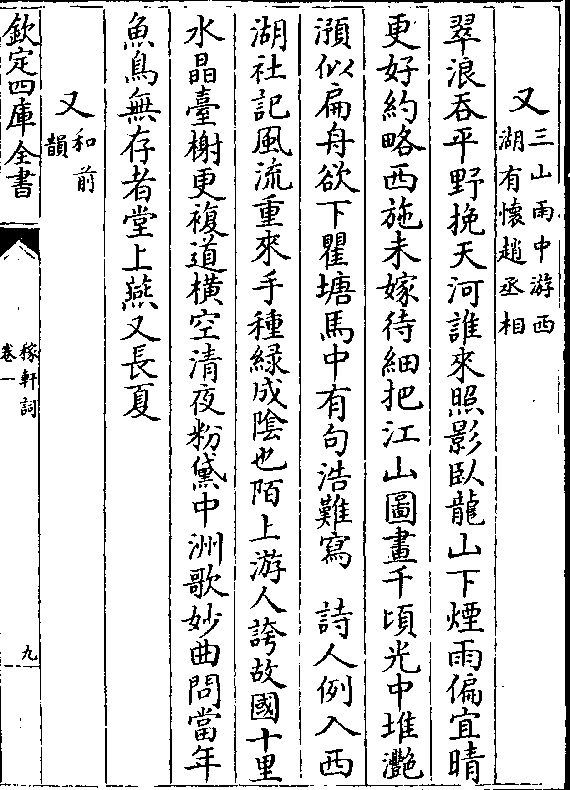 又三山雨中游西
湖有懷趙丞相
翠浪吞平野挽天河誰來照影臥龍山下煙雨偏宜晴
更好約略西施未嫁待細把江山圖畫千頃光中堆灔
澦似扁舟欲下瞿塘馬中有句浩難寫 詩人例入西
湖社記風流重來手種緑成隂也陌上游人誇故國十里
水晶臺榭更複道橫空清夜粉黛中洲歌妙曲問當年
魚鳥無存者堂上燕又長夏
又和前
韻
欽定四庫全書
稼軒詞
卷一
九